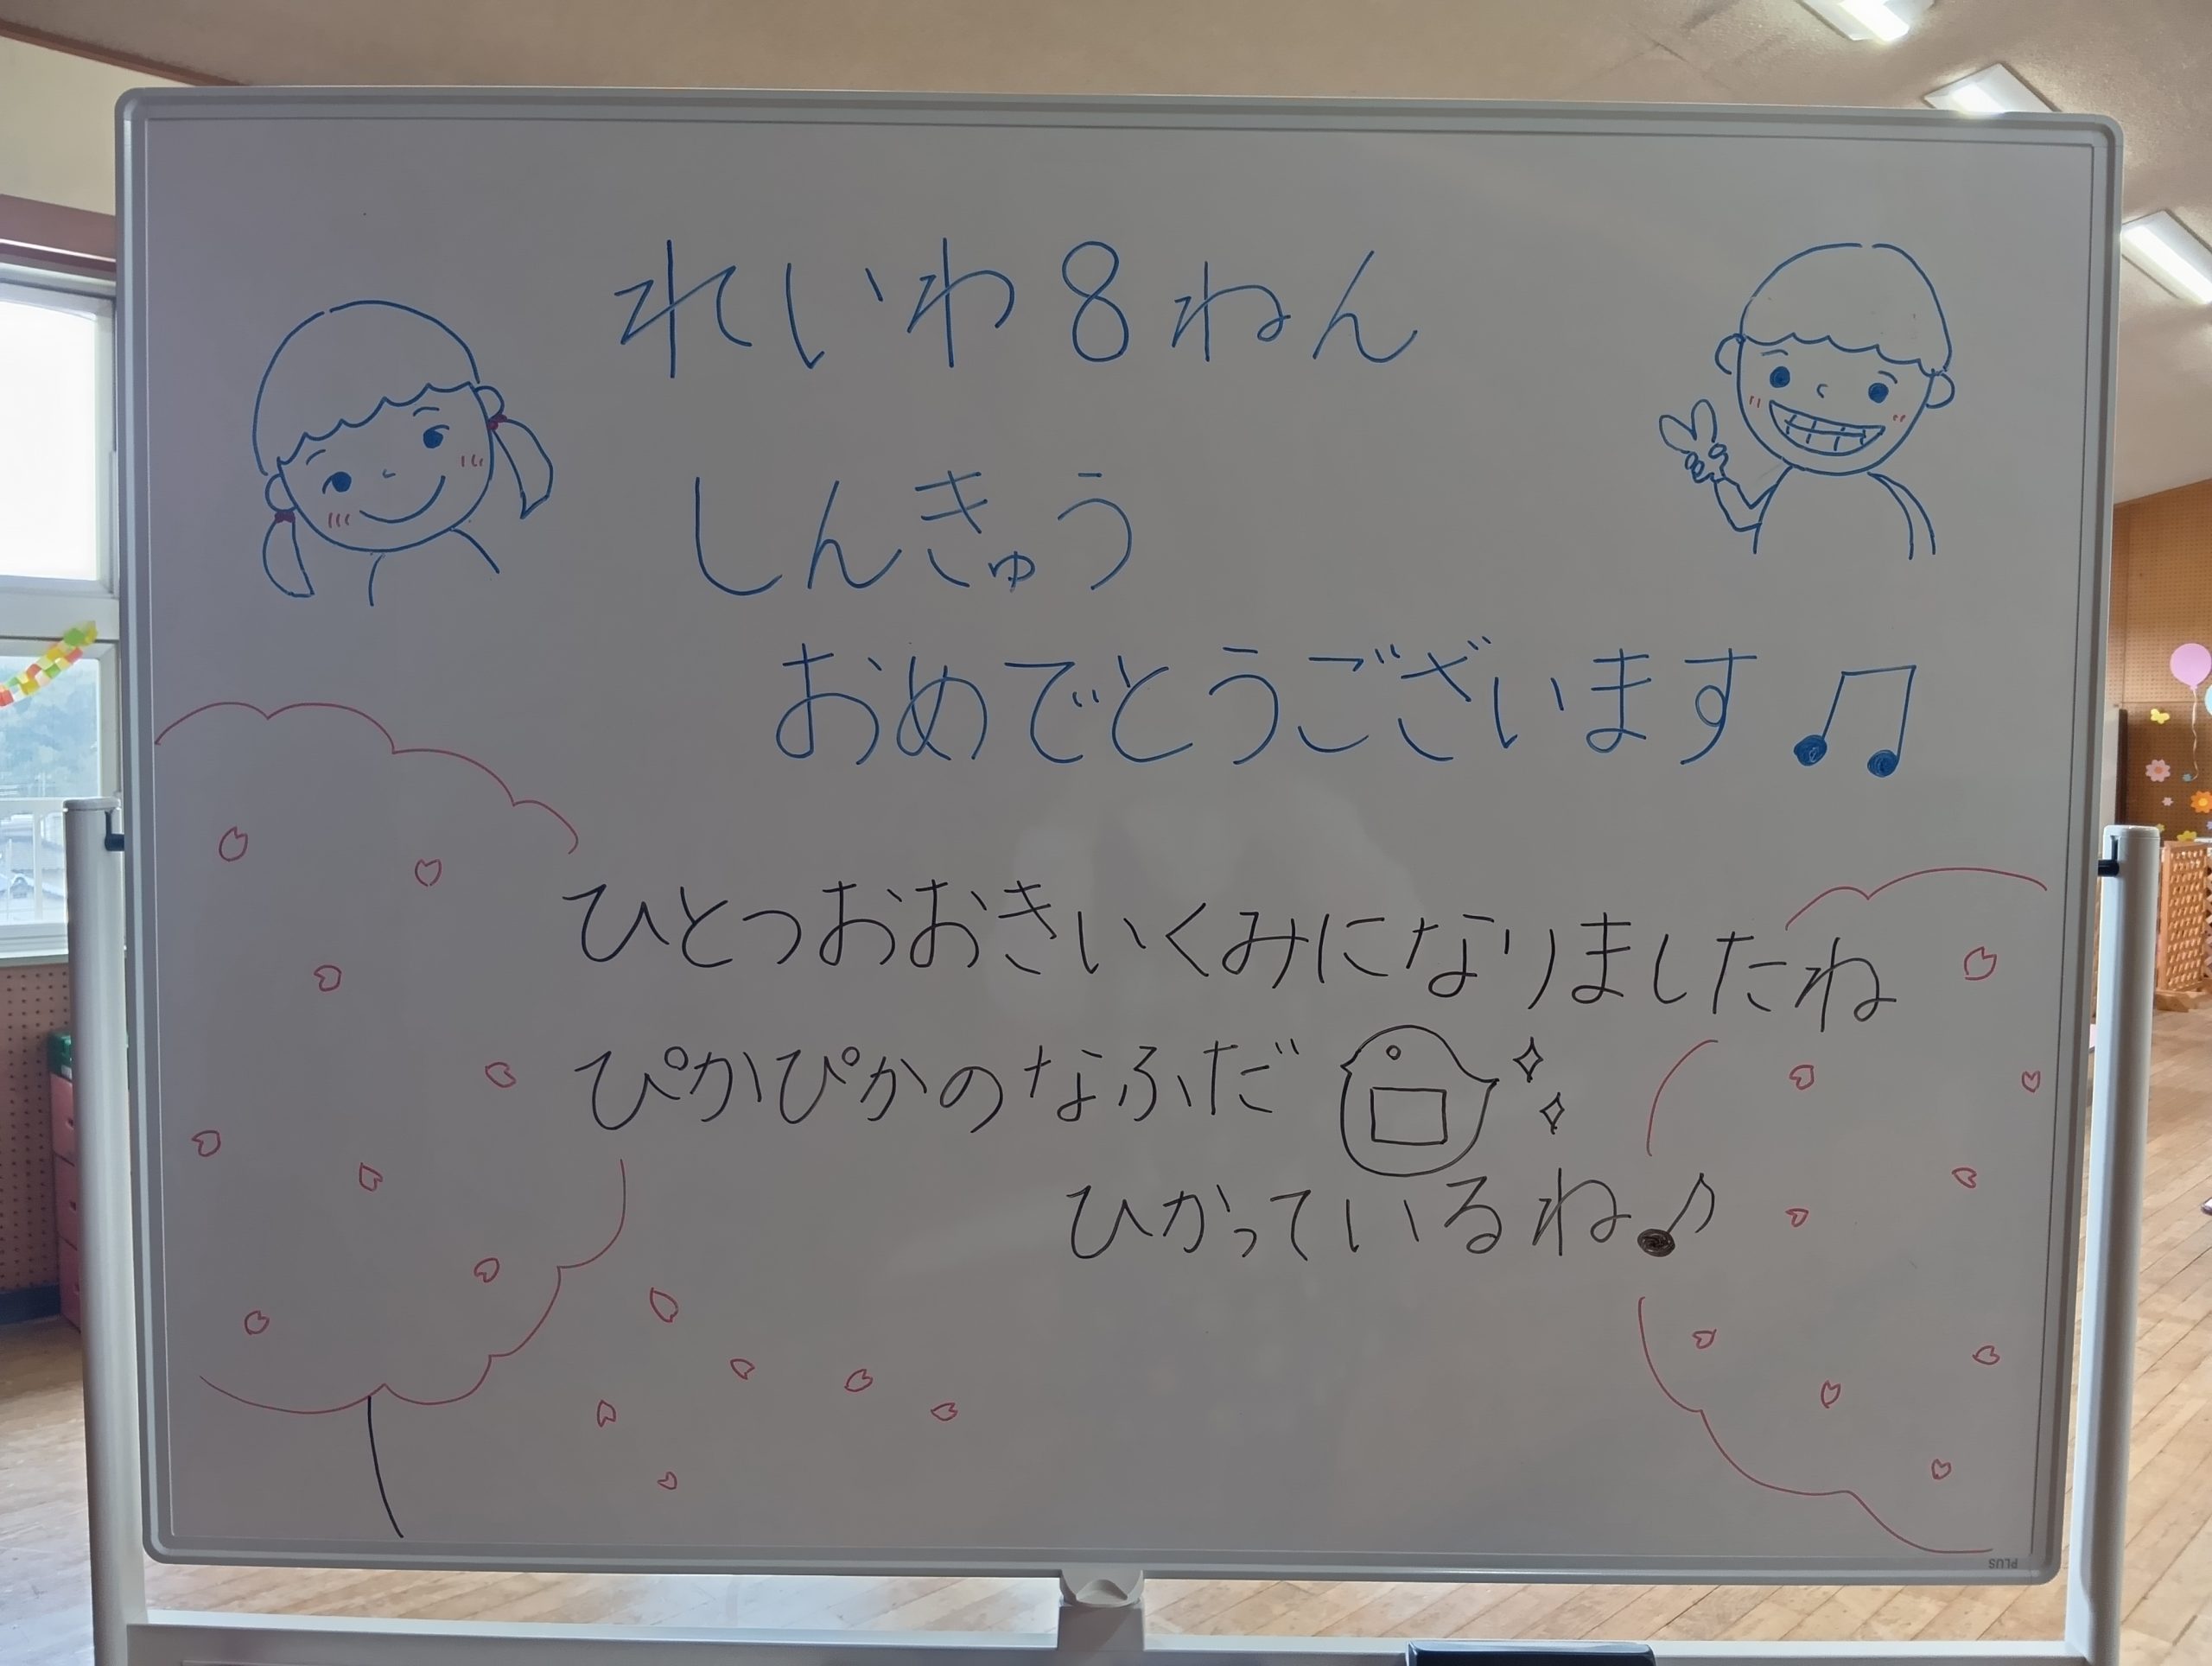 れいわ8ねん
しんきゅう
おめでとうございます♫
ひとつおおきいくみになりましたね
ぴかぴかのなふだ
ひかっているね♪
PLUS